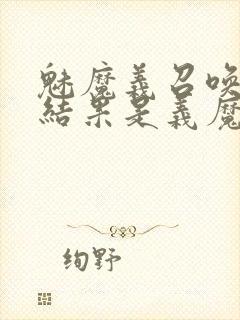 魅魔義召喚
結果是義魔
绚野